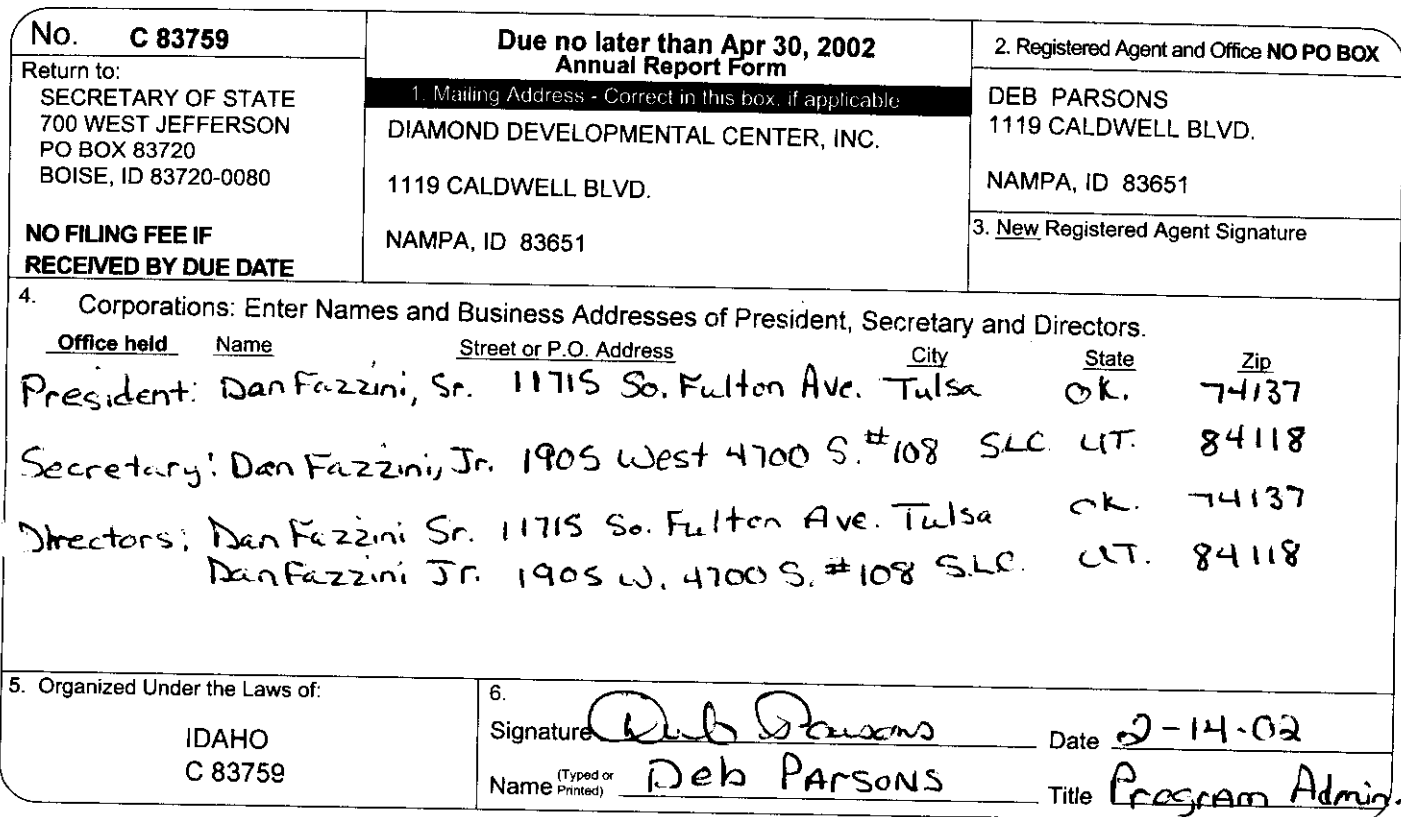 No. C 83759
Return to:
SECRETARY OF STATE
700 WEST JEFFERSON
PO BOX 83720
BOISE, ID 83720-0080
NO FILING FEE IF
RECEIVED BY DUE DATE
Due no later than Apr 30, 2002
Annual Report Form
1. Mailing Address - Correct in this box, if applicable
DIAMOND DEVELOPMENTAL CENTER, INC.
1119 CALDWELL BLVD.
NAMPA, ID 83651
2. Registered Agent and Office NO PO BOX
DEB PARSONS
1119 CALDWELL BLVD.
NAMPA, ID 83651
3. New Registered Agent Signature
4. Corporations: Enter Names and Business Addresses of President, Secretary and Directors.
Office held Name Street or P.O. Address City State Zip
President: Dan Fazzini, Sr. 11715 So. Fulton Ave. Tulsa OK. 74137
Secretary: Dan Fazzini, Jr. 1905 West 4700 S. #108 SLC UT. 84118
Directors: Dan Fazzini Sr. 11715 So. Fulton Ave. Tulsa OK. 74137
Dan Fazzini Jr. 1905 W. 4700 S. #108 S.L.C. UT. 84118
5. Organized Under the Laws of:
IDAHO
C 83759
6.
Signature Deb Parsons Date 2-14-02
Name (Typed or Printed) Deb PArsons Title Program Admin.